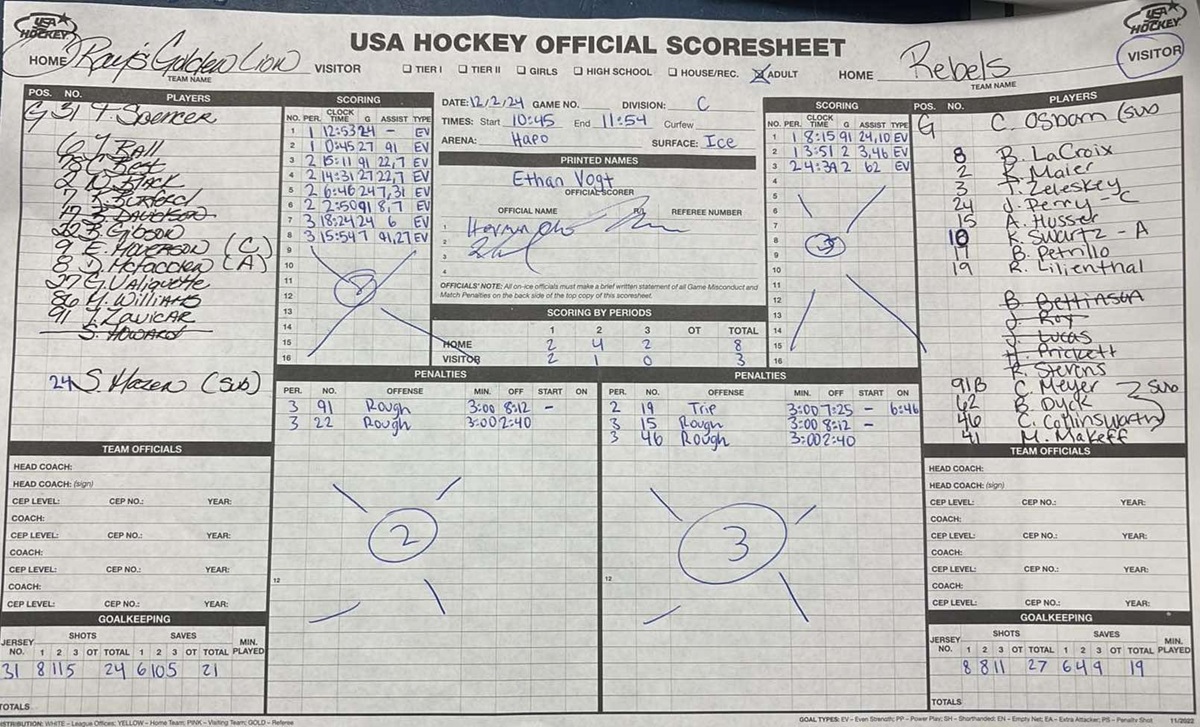 USA HOCKEY
USA HOCKEY
USA HOCKEY OFFICIAL SCORESHEET
HOME Ray's Golden Lion VISITOR
TEAM NAME
TIER I TIER II GIRLS HIGH SCHOOL HOUSE/REC. ADULT
HOME Rebels VISITOR
TEAM NAME
POS. NO. PLAYERS
G 31 T. Spencer
6 J. Ball
8 C. Best
2 N. Black
7 R. Burford
12 B. Davidson
22 B. Gibson
9 E. Halverson (C)
8 S. McFadden (A)
27 G. Valiquette
86 M. Williams
91 J. Zawicar
S. Howard
24 S. Hazen (Sub)
SCORING
NO. PER. CLOCK TIME G ASSIST TYPE
1 1 12:53 24 - EV
2 1 0:45 27 91 EV
3 2 15:11 91 22,7 EV
4 2 14:31 27 22,7 EV
5 2 6:46 24 7,31 EV
6 2 2:50 91 8,7 EV
7 3 18:24 24 6 EV
8 3 15:54 7 91,27 EV
9
10
11
12
13
14
15
16
8
DATE: 12/2/24 GAME NO. DIVISION: C
TIMES: Start 10:45 End 11:54 Curfew
ARENA: Hapo SURFACE: Ice
PRINTED NAMES
Ethan Vogt
OFFICIAL SCORER
OFFICIAL NAME REFEREE NUMBER
1
2
3
4
OFFICIALS' STATEMENT: All on-ice officials must make a brief written statement of all Game Misconduct and
Match Penalties on the back side of the top copy of this scoresheet.
SCORING BY PERIODS
1 2 3 OT TOTAL
HOME 2 4 2 8
VISITOR 2 1 0 3
SCORING
NO. PER. CLOCK TIME G ASSIST TYPE
1 1 8:15 91 24,10 EV
2 1 3:51 2 3,46 EV
3 2 4:34 2 62 EV
4
5
6
7
8
9
10
11
12
13
14
15
16
3
POS. NO. PLAYERS
G C. Osborn (sub
8 B. LaCroix
2 R. Maier
3 T. Zeleskey
24 J. Perry - C
15 A. Husser
10 K. Swartz - A
17 B. Petrillo
19 R. Lilienthal
B. Bettinson
J. Roy
J. Lucas
H. Prickett
R. Stevens
91B C. Meyer
62 B. Dyck
46 C. Collinsworth
Sub
41 M. Makeff
PENALTIES
PER. NO. OFFENSE MIN. OFF START ON
3 91 Rough 3:00 8:12 -
3 22 Rough 3:00 2:40
12
2
PENALTIES
PER. NO. OFFENSE MIN. OFF START ON
2 19 Trip 3:00 7:25 - 6:46
3 15 Rough 3:00 8:12 -
3 46 Rough 3:00 2:40
12
3
TEAM OFFICIALS
HEAD COACH:
HEAD COACH: (sign)
CEP LEVEL: CEP NO.: YEAR:
COACH:
CEP LEVEL: CEP NO.: YEAR:
COACH:
CEP LEVEL: CEP NO.: YEAR:
COACH:
CEP LEVEL: CEP NO.: YEAR:
GOALKEEPING
JERSEY NO. SHOTS SAVES MIN. PLAYED
1 2 3 OT TOTAL 1 2 3 OT TOTAL
31 8 11 5 24 6 10 5 21
TOTALS
TEAM OFFICIALS
HEAD COACH:
HEAD COACH: (sign)
CEP LEVEL: CEP NO.: YEAR:
COACH:
CEP LEVEL: CEP NO.: YEAR:
COACH:
CEP LEVEL: CEP NO.: YEAR:
COACH:
CEP LEVEL: CEP NO.: YEAR:
GOALKEEPING
JERSEY NO. SHOTS SAVES MIN. PLAYED
1 2 3 OT TOTAL 1 2 3 OT TOTAL
8 8 11 27 6 4 9 19
TOTALS
DISTRIBUTION: WHITE – League Offices; YELLOW – Home Team; PINK – Visiting Team; GOLD – Referee
GOAL TYPES: EV – Even Strength; PP – Power Play; SH – Shorthanded; EN – Empty Net; EA – Extra Attacker; PS – Penalty Shot 11/2022